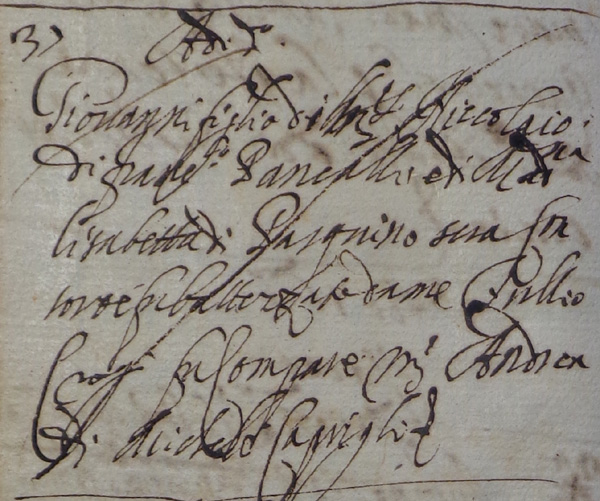 Adi d.
Giovanni figlio di m.re Niccolaio
di Pancalli e di M.a
lisabetta di Pasquino sua Con
sorte fu batterzato da me Tullio
fu Compare m.r Andrea
di Michele Caprigli